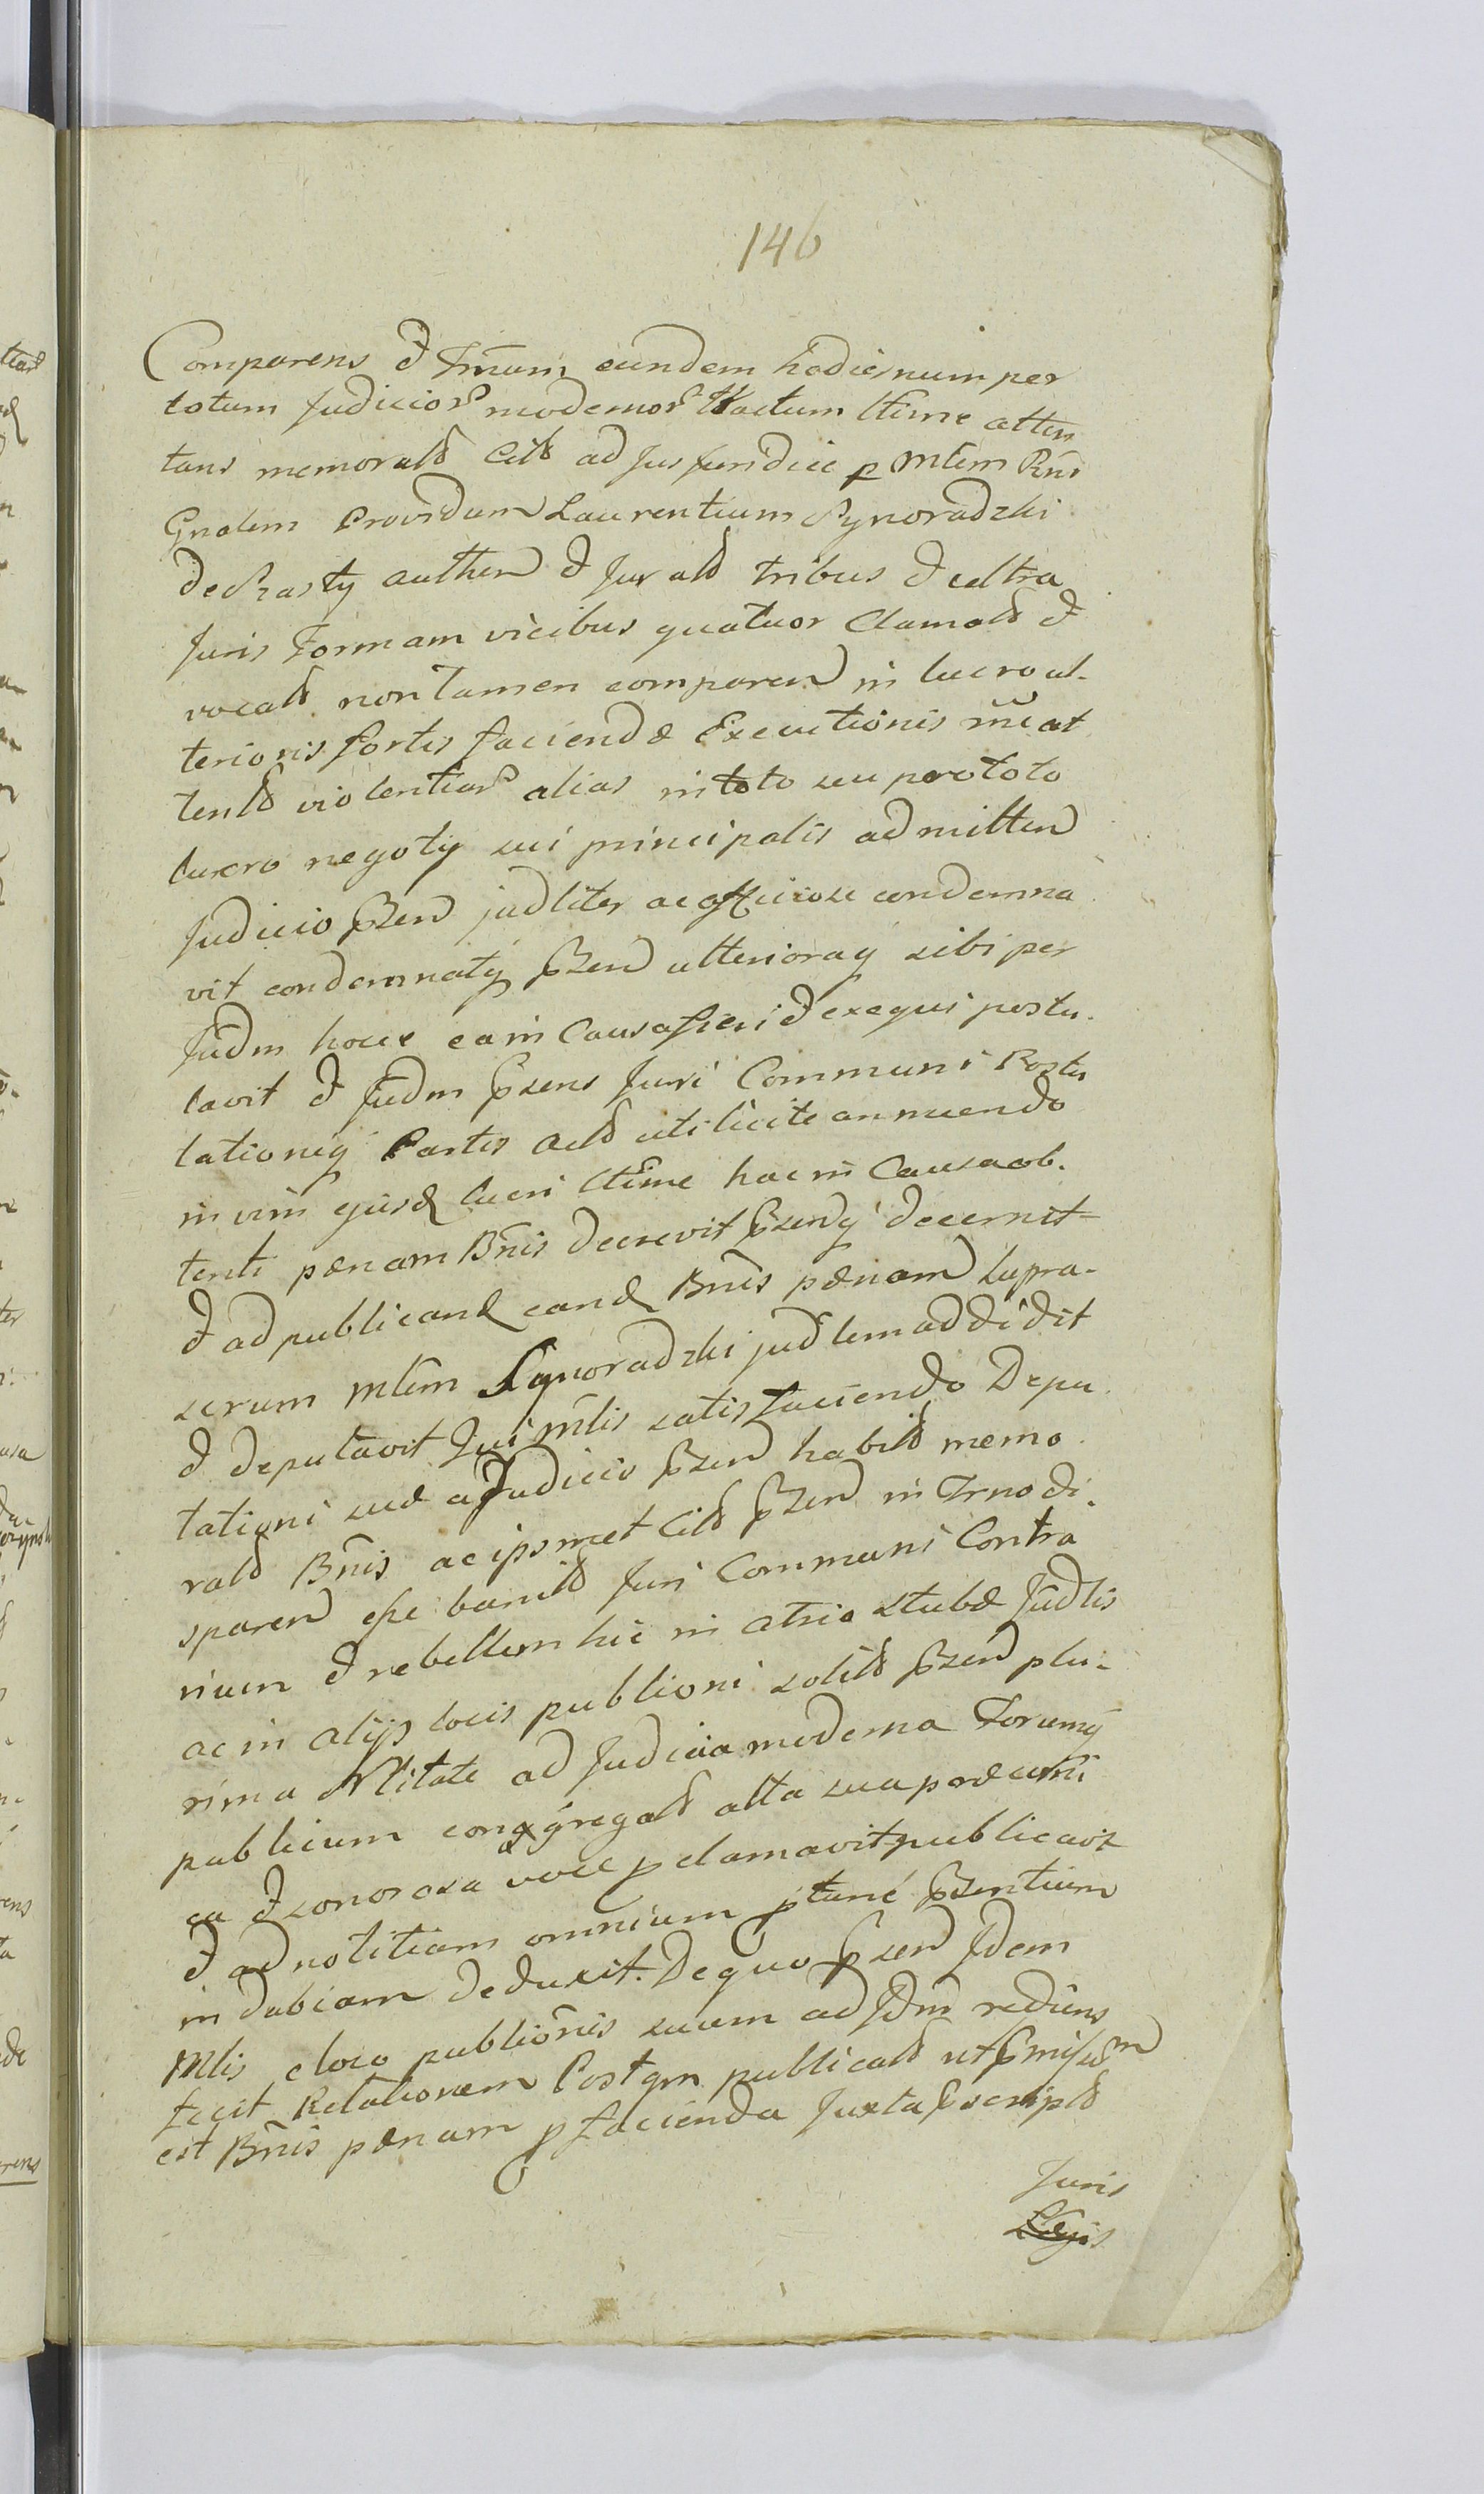 146
Comparens & Trnum eundem hodiernum per
totum Judicior modernor tractum lttime atten
tans memoratt Citt ad Jus juridice p Mlem Rni
Gnalem Providum Laurentium Synoradzki
de Chasty authen & Juratt tribus & ultra
Juris Formam vicibus quatuor Clamatt &
vocatt non tamen comparen in lucro ul-
terioris fortis faciendæ Executionis rñe at
tentt violentiar alias in toto seu pro toto
lucro negoty sui principalis admitten
Judicio pzen judliter ac officiose condemna
vit condemnatq pzen ulterioraq sibi per
Judm hocce ea in Causa fieri & exequi postu-
lavit & Judm pzens Juri Communi Postu
lationiq Partis Actt uti licite annuendo
in vim ejusd lucri lttime hac in Causa ob-
tenti pænam Bnis decrevit pzenq decernit
& ad publicand eand Bnis pænam supra-
scrum Mlem Synoradzki judlem addidit
& deputavit Qui Mlis satisfaciendo Depu
tationi suæ a Judicio pzen habitt memo
ratt Bnis ac ipsmet Citt pzen in Trno di-
sparen esse banitt Juri Communi Contra
rium & rebellem hic in atrio stubæ Judlis
ac in alijs locis publioni solitt pzen plu-
rima Nltitate ad Judicia moderna Forumq
publicum congregatt alta sua præconi
ca & sonorosa voce pclamavit publicavit
& ad notitiam omnium ptunc pzentium
in dubiam deduxit. De quo pzen Idem
Mlis e loco publionis suum ad Jdm rediens
fecit Relationem Postqm publicatt ut pmissum
est Bnis pænam p facienda Juxta pscriptt
Juris
Legis